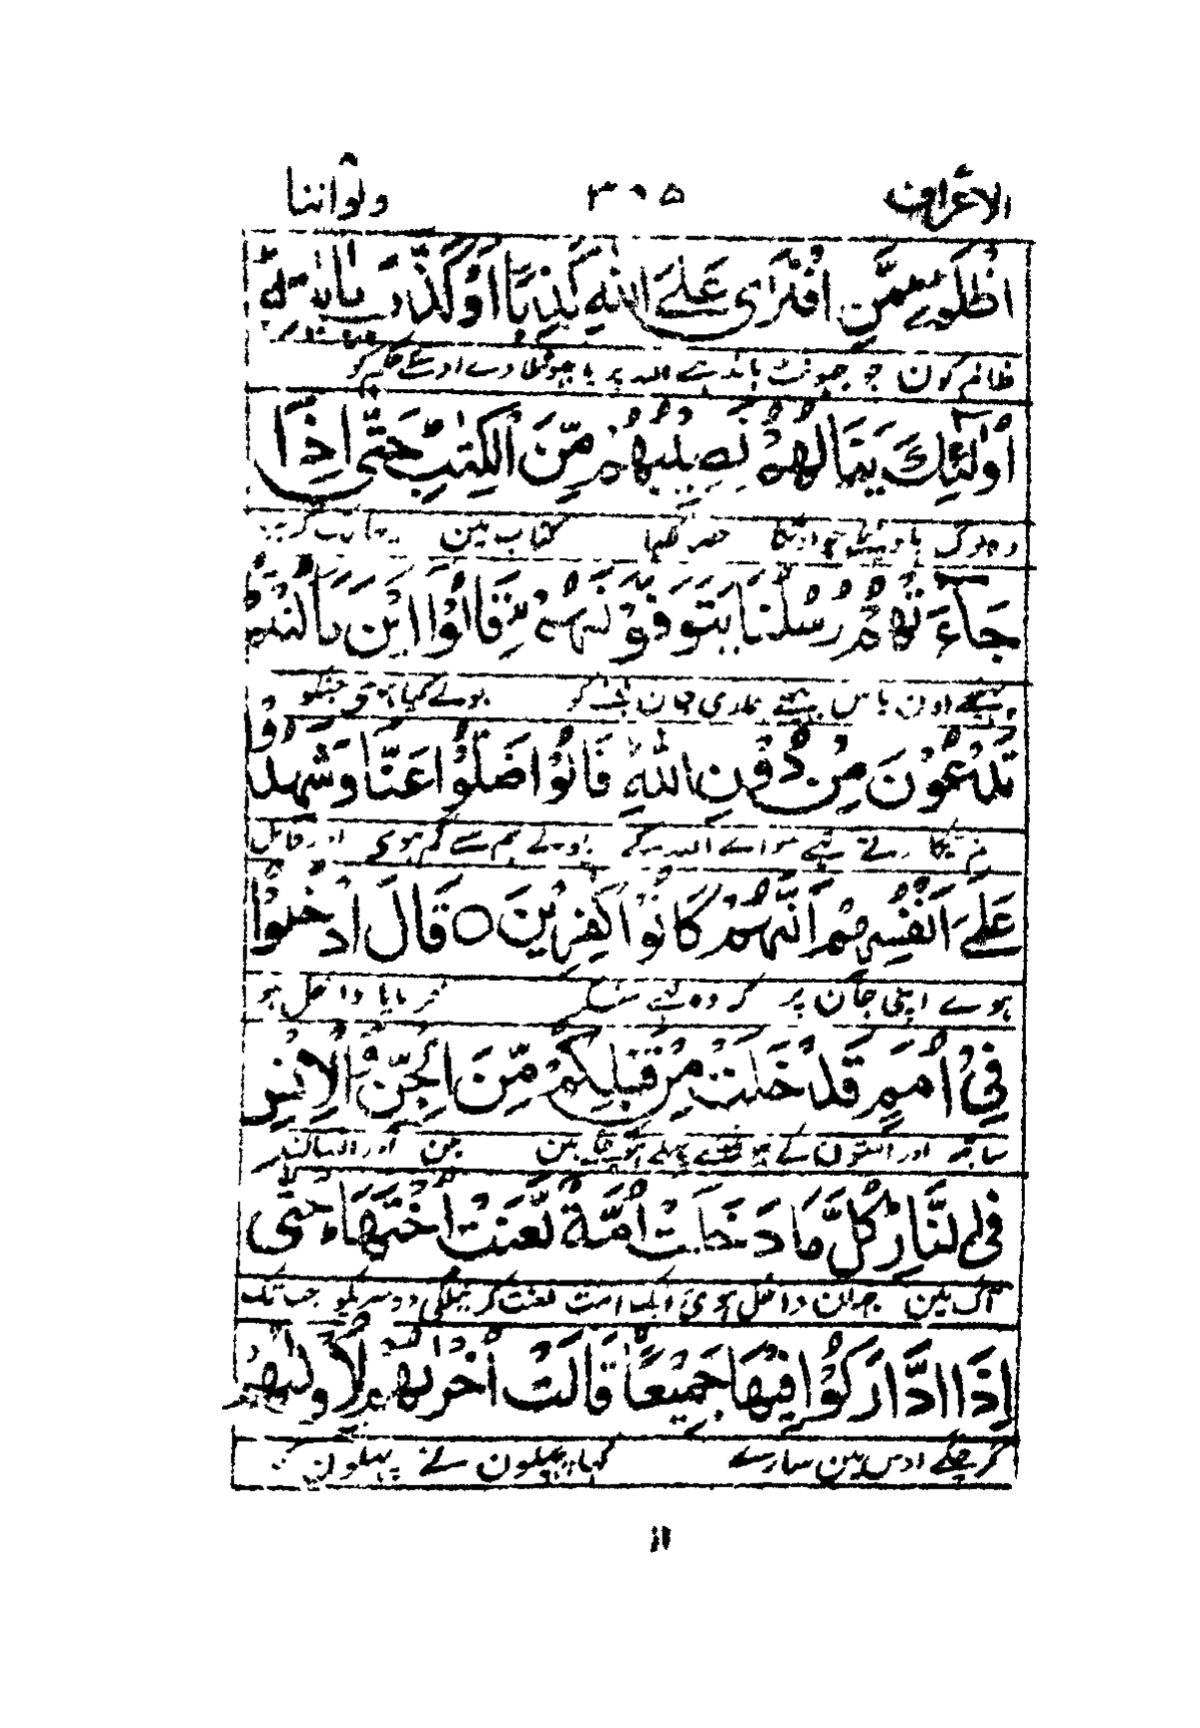 الاعراف ۳۰۵ ولواننا
اَظْلَمُ مِمَّنِ افْتَرٰى عَلَى اللّٰهِ كَذِبًا اَوْ كَذَّبَ بِاٰيٰتِهٖ
ظالم کون جو جھونٹ باندہے اللہ پر یا جھوٹلاوے اوسکے حکم کو
اُولٰٓئِكَ يَنَالُهُمْ نَصِيْبُهُمْ مِّنَ الْكِتٰبِ حَتّٰى اِذَا
وہ لوگ پاوینگے جو اونکا حصہ لکھا کتاب مین
جَآءَتْهُمْ رُسُلُنَا يَتَوَفَّوْنَهُمْ قَالُوْا اَيْنَ مَا كُنْتُمْ
پہنچے اون پاس بھیجے ہماری جان لینے کو بولے کیا ہوئی جنکو
تَدْعُوْنَ مِنْ دُوْنِ اللّٰهِ قَالُوْا ضَلُّوْا عَنَّا وَشَهِدُوْا
تم پکارتے تھے سواے اللہ کے بولے ہم سے گم ہوی اور قائل
عَلٰى اَنْفُسِهِمْ اَنَّهُمْ كَانُوْا كٰفِرِيْنَ ○ قَالَ ادْخُلُوْا
ہوے اپنی جان پر کہ وہ تھے منکر فرمایا داخل ہو
فِيْ اُمَمٍ قَدْ خَلَتْ مِنْ قَبْلِكُمْ مِّنَ الْجِنِّ وَالْاِنْسِ
ساتھ اور امتون کے جو تمسے پہلے ہوچکے ہین جن اور انسان
فِى النَّارِ كُلَّمَا دَخَلَتْ اُمَّةٌ لَّعَنَتْ اُخْتَهَا حَتّٰى
آگ مین جہان داخل ہوی ایک امت لعنت کرنیلگی دوسریکو جب تک
اِذَا ادَّارَكُوْا فِيْهَا جَمِيْعًا قَالَتْ اُخْرٰىهُمْ لِاُوْلٰىهُمْ
گر چکے اوس مین سارے کہا پچھلون نے پہلون کو